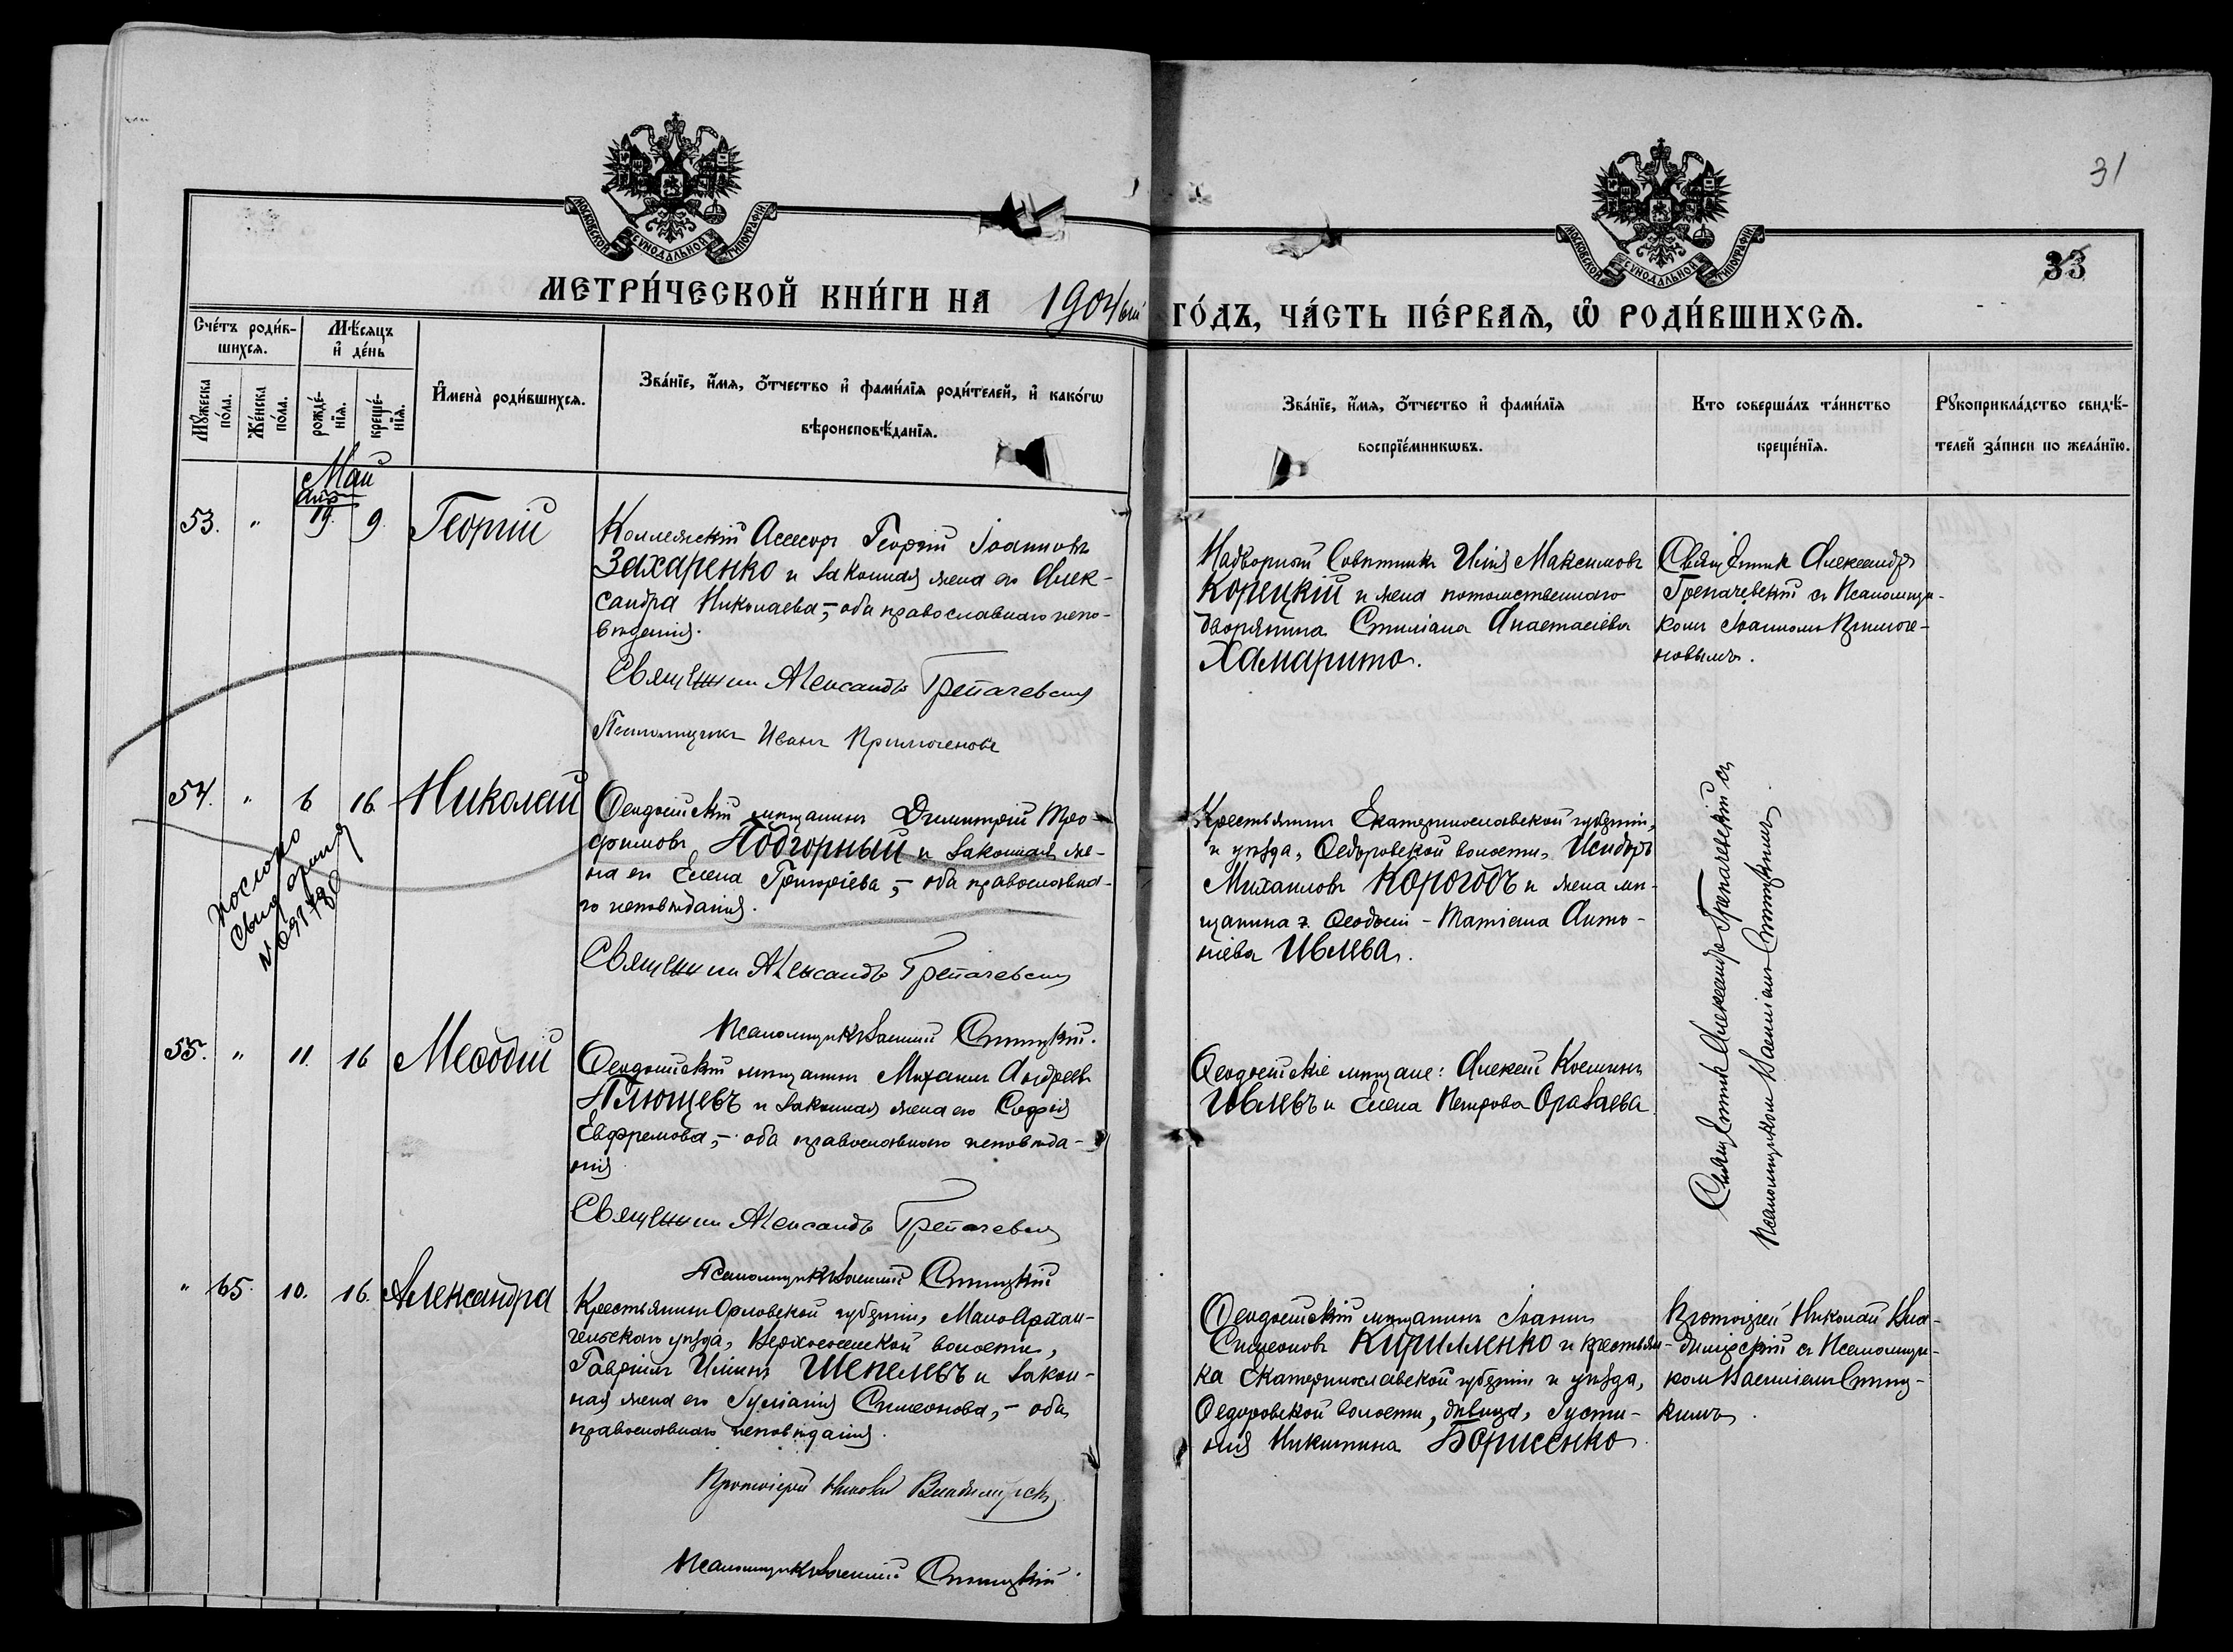 31
33
МОСКОВСКОЙ СѴНОДАЛЬНОЙ ТИПОГРАФІИ
МОСКОВСКОЙ СѴНОДАЛЬНОЙ ТИПОГРАФІИ
МЕТРИ́ЧЕСКОЙ КНИ́ГИ НА 1904ый ГО́ДЪ, ЧА́СТЬ ПЕ́РВАЯ, Ѡ҆ РОДИ́ВШИХСЯ.
Сче́тъ роди́в-
шихся.
Мѣ́сяцъ
и҆ де́нь
Мꙋ́жеска
по́ла.
Же́нска
по́ла.
рожде́-
нїя.
креще́-
нїя.
И҆мена̀ роди́вшихся.
Зва́нїе, и҆́мя, ѻ҆́тчество и҆ фами́лїя роди́телей, и҆ како́гѡ
вѣроисповѣ́данїя.
Зва́нїе, и҆́мя, ѻ҆́тчество и҆ фами́лїя
воспрїе́мникѡвъ.
Кто соверша́лъ та́инство
креще́нїя.
Рꙋкоприкла́дство свидѣ́-
телей за́писи по жела́нїю.
Май
Апр
53. " 19. 9. Георгій
Коллежскій Ассесоръ Георгій Іоанновъ
Захаренко и законная жена его Алек-
сандра Николаева,- оба православнаго испо-
вѣданія.
Священник Александръ Трепачевский
Псаломщикъ Иванъ Примогеновъ
Надворный Совѣтникъ Илія Максимовъ
Корецкій и жена потомственнаго
дворянина Стиліана Анастасіева
Хамарито.
Священник Александръ
Трепачевскій съ Псаломщи-
комъ Іоанномъ Примоге-
новымъ.
54. " 6 16. Николай
Ѳеодосійскій мѣщанинъ Димитрій Тро-
фимовъ Подгорный и законная же-
на его Елена Григоріева,- оба православна-
го исповѣданія.
Священник Александръ Трепачевский
Псаломщикъ Василій Ступицкій.
Крестьянинъ Екатеринославской губерніи,
и уѣзда, Ѳедоровской волости, Исидоръ
Михаиловъ Корогодъ и жена мѣ-
щанина г. Ѳеодосіи - Татіана Анто-
ніева Ивлева.
Священник Александръ Трепачевскій съ
Псаломщикомъ Василіемъ
55. " 11. 16 Меѳодій
Ѳеодосійскій мѣщанинъ Михаилъ Андреевъ
Плющевъ и законная жена его Софія
Евфремова,- оба православнаго исповѣда-
нія
Священник Александръ Трепачевский
Псаломщикъ Василій
Ѳеодосійскіе мѣщане: Алексій Косминъ
Ивлевъ и Елена Петрова
" 65. 10. 16. Александра
Крестьянинъ Орловской губерніи, МалоАрхан-
гельскаго уѣзда, волости,
Гавріилъ Ильинъ Шепелевъ и закон-
ная жена его Іуліанія Симеонова,- оба
православнаго исповѣданія.
Протоіерей Николай Владимірск
Псаломщикъ Василій
Ѳеодосійскій мѣщанинъ Іоаннъ
Симеоновъ Кириленко и крестьян-
ка Екатеринославской губерніи и уѣзда,
Ѳедоровской волости, дѣвица, Іусти-
нія Никитина Борисенко.
Протоіерей Николай Вла-
димірскій съ Псаломщи-
комъ Василіемъ